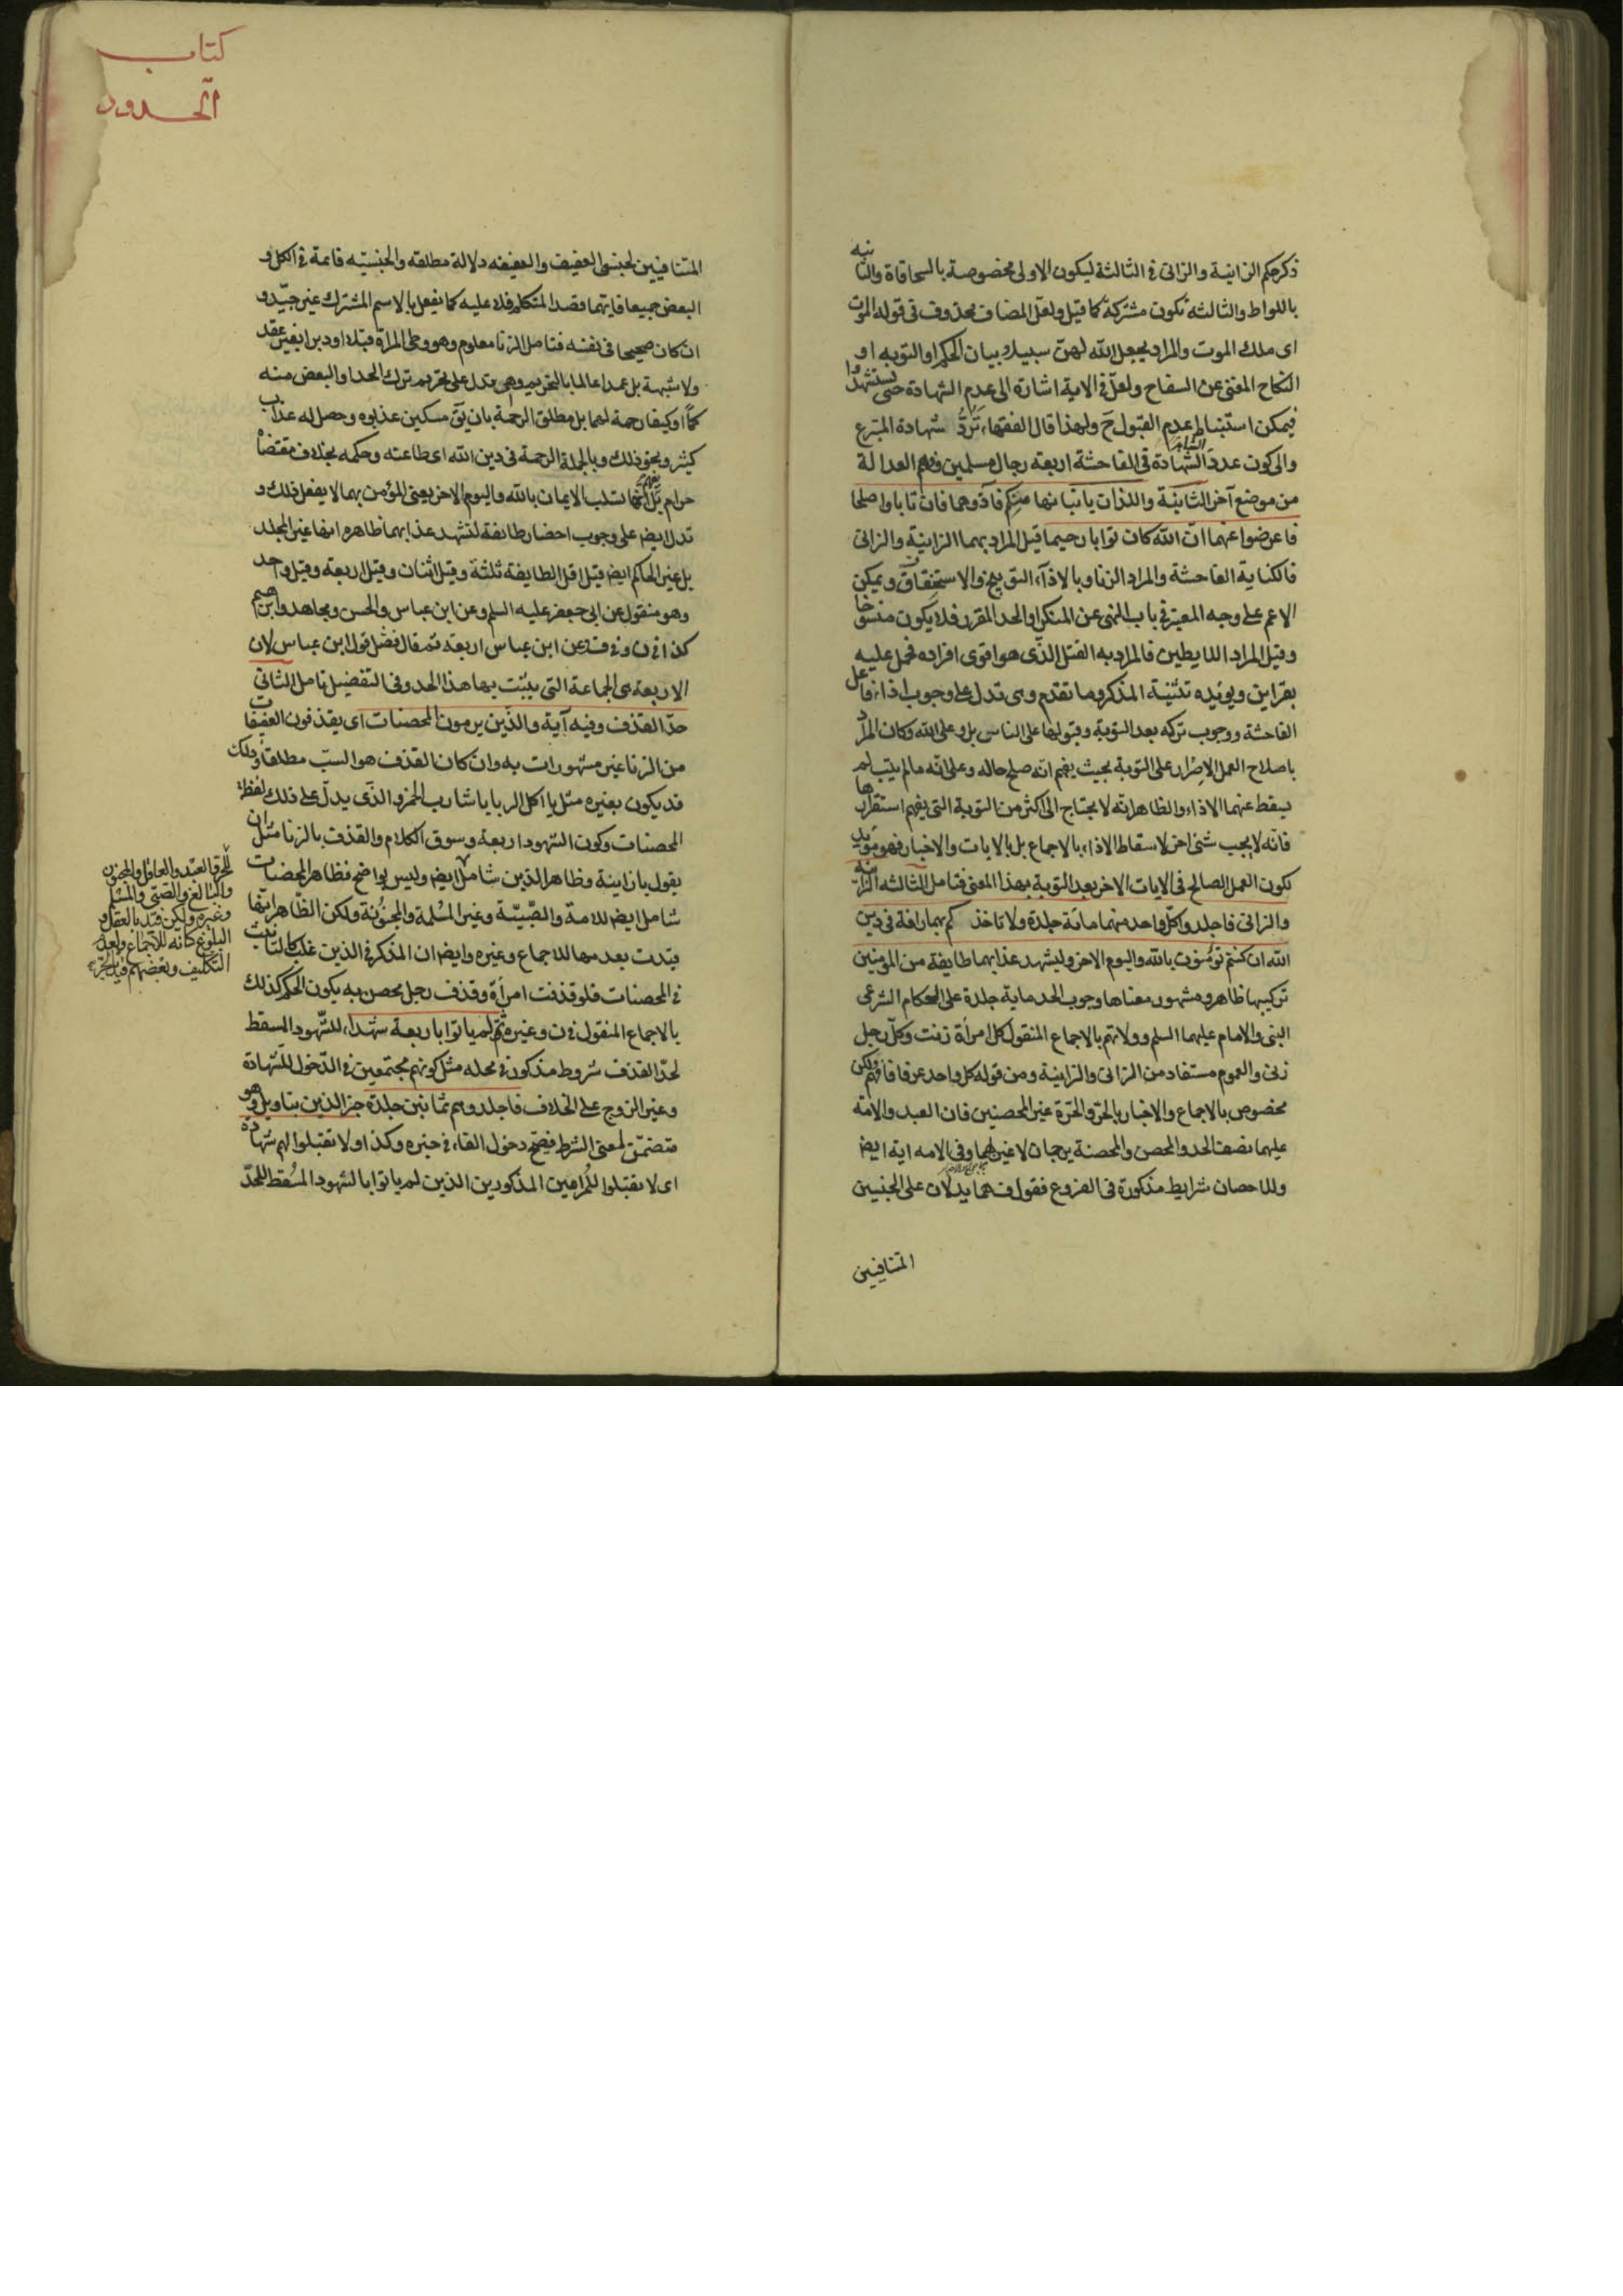 ذكر حكم الزانية والزانى فى الثالثة ليكون الاولى مخصوصة بالسحاقاة والثانيه
باللواط والثالثه تكون مشتركة كما قيل ولعل المضاف محذوف فى قوله الموت
اى ملك الموت والمراد بجعل الله لهن سبيلا بيان الحكم او التوبه او
النكاح المغنى عن السفاح ولعل فى الاية اشارة الى عدم الشهادة حتى يستشهدوا
فيمكن استنباط عدم القبول ح ولهذا قال الفقهاء تردّ شهادة المتبرع
والى كون عدد الشهادة فى الفاحشة اربعة رجال مسلمين وفهم العدالة
من موضع آخر الثانية واللذان ياتيانها منكم فآذوهما فان تابا واصلحا
فاعرضوا عنهما ان الله كان توابا رحيما قيل المراد بهما الزانية والزانى
فالكناية الفاحشة والمراد الزنا وبالاذاء التوبيخ والاستخفاف ويمكن
الاعم على وجه المعتبر فى باب النهى عن المنكر او الحد المقرر فلا يكون منسوخا
وقيل المراد اللايطين فالمراد به القتل الذى هو اقوى افراده فحمل عليه
بقراين ويويده تثنية المذكر وما تقدم وهى تدل على وجوب اذاء فاعل
الفاحشة ووجوب تركه بعد التوبة وقبولها على الناس بل وعلى الله وكان المراد
باصلاح العمل الاصرار على التوبة بحيث يفهم انه صلح حاله وعلى انه مالم يتب لم
يسقط عنهما الاذاء والظاهر انه لا يحتاج الى اكثر من التوبة التى يفهم استقرارها
فانه لا يجب شئ اخر لاسقاط الاذاء بالاجماع بل بالايات والاخبار فهو مويد
لكون العمل الصالح فى الايات الاخر بعد التوبة بهذا المعنى فتامل الثالثه الزانيه
والزانى فاجلدوا كل واحد منهما مائة جلدة ولا تاخذكم بهما رافة فى دين
الله ان كنتم تؤمنون بالله واليوم الاخر وليشهد عذابهما طايفة من المومنين
تركيبها ظاهر ومشهور معناها وجوب الحد ماية جلدة على الحكام الشرعى
النبى والامام عليهما السلم وولاتهم بالاجماع المنقول كل امرأة زنت وكل رجل
زنى والعموم مستفاد من الزانى والزانية ومن قوله كل واحد عرفا فافهم ولكن
مخصوص بالاجماع والاخبار بالحر والحرة غير المحصنين فان العبد والامة
عليهما نصف الحد والمحصن والمحصنة يرجمان لا غير لهما وفى الامه اية ايض
وللاحصان شرايط مذكورة فى الفروع فقول ف هما يدلان على الجنسين
المتنافيين
كتاب
الحدود
المتنافيين لجنسى العفيف والعفيفه دلالة مطلقه والجنسيه قائمة فى الكل و
البعض جميعا فايهما قصد المتكلم فلا عليه كما يفعل بالاسم المشترك غير جيّد و
ان كان صحيحا فى نفسه فتامل الزنا معلوم وهو وطى المراة قبلا او دبرا بغير عقد
ولا شبهة بل عمدا عالما بالتحريم وهى تدل على تحريم ترك الحد او البعض منه
كمّا او كيفا رحمة لهما بل مطلق الرحمة بان يق مسكين عذبوه وحصل له عذاب
كثير ونحو ذلك وبالجملة الرحمة فى دين الله اى طاعته وحكمه بخلاف مقتضاه
حرام بل يفهم انها تسلب الايمان بالله واليوم الاخر يعنى المؤمن بهما لا يفعل ذلك و
تدل ايض على وجوب احضار طايفة لتشهد عذابهما ظاهره انها غير المجلد
بل غير الحاكم ايض قيل اقل الطايفة ثلثة وقيل اثنان وقيل اربعة وقيل واحد
وهو منقول عن ابى جعفر عليه السلم وعن ابن عباس والحسن ومجاهد وابرهيم
كذا فى ن وفى ف وعن ابن عباس اربعة ثم قال فضل قول ابن عباس لان
الاربعة هى الجماعة التى يثبت بها هذا الحد وفى التفضيل تامل الثانى
حدّ القذف وفيه آية والذين يرمون المحصنات اى يقذفون العفيفات
من الزنا غير مشهورات به وان كان القذف هو السبّ مطلقا وذلك
قد يكون بغيره مثل يا اكل الربا يا شارب الخمر والذى يدلّ على ذلك لفظة
المحصنات وكون الشهود اربعة وسوق الكلام والقذف بالزنا مثل ان
يقول يا زانية وظاهر الذين شامل ايض وليس بواضح فظاهر المحصنات
شامل ايض للامة والصّبيّة وغير المسُلمة والمجنُونة ولكن الظاهر انها
قيّدت بعدمها للاجماع وغيره وايض ان المذكر فى الذين غلب كالتانيث
فى المحصنات فلو قذفت امرأة وقذف رجل محصن به يكون الحكم كذلك
بالاجماع المنقول فى ن وغيره ثم لم ياتوا باربعة شهداء للشهود المسقط
لحدّ القذف شروط مذكورة فى محله مثل كونهم مجتمعين فى الدّخول للشهادة
وغير الزوج على الخلاف فاجلدوهم ثمانين جلدة خبر الذين بتاويل وهو
متضمّن لمعنى الشرط فيصحّ دخول الفاء فى خبره وكذا ولا تقبلوا لهم شهادة
اى لا تقبلوا للرامين المذكورين الذين لم ياتوا بالشهود المسُقط للحدّ
للحرّ والعبد والعاقل والمجنون
والبالغ والصّبىّ والمسْلم
وغيره ولكن قيّد بالعقل و
البلوغ كانه للاجماع ولعدم
التكليف وبعضهم قيد بالحريّة